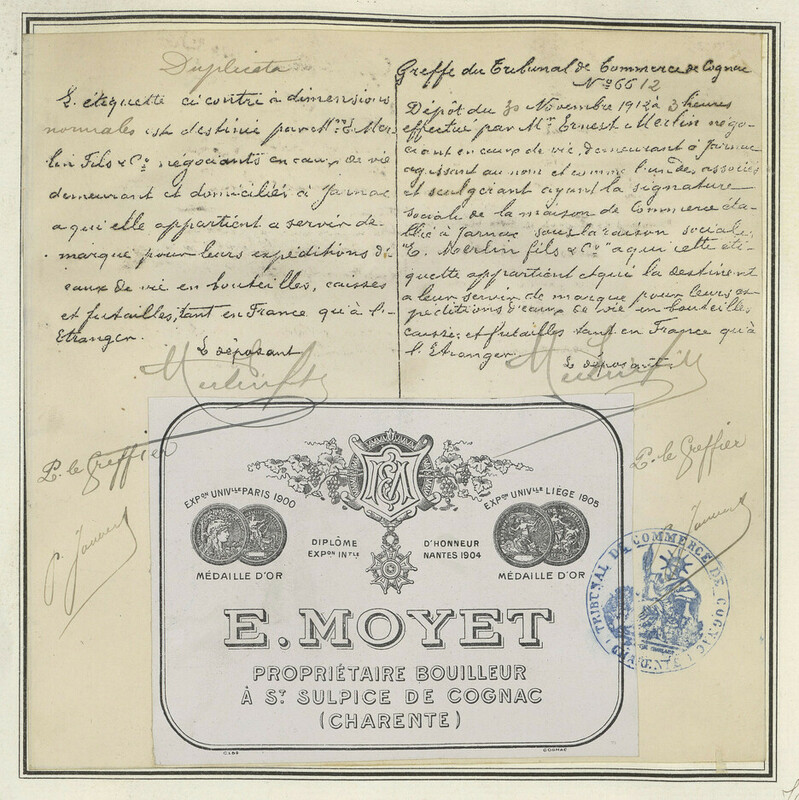 Duplicata
L'étiquette ci contre à dimensions
normales est destinée par Mrs E. Mer-
lin Fils & Co négociants en eaux de vie
demeurant et domiciliés à Jarnac
a qui elle appartient a servir de
marque pour leurs expéditions d'
eaux de vie en bouteilles, caisses
et futailles, tant en France qu'à l'-
Etranger.
Le déposant
Merlin fils
P. le Greffier
P. Jauvert
Greffe du Tribunal de Commerce de Cognac
No 6612
Dépôt du 30 Novembre 1912 à 3 heures
effectué par Mr. Ernest Merlin négo-
ciant en eaux de vie, demeurant à Jarnac
agissant au nom et comme l'un des associés
et seul gérant ayant la signature
sociale de la maison de Commerce éta-
blie à Jarnac sous la raison sociale,
"E. Merlin fils & Co" a qui cette éti-
quette appartient et qui la destinent
a leur servir de marque pour leurs ex-
péditions d'eaux de vie en bouteilles
caisses et futailles tant en France qu'à
l'Etranger.
Le déposant.
Merlin fils
P. le Greffier
P. Jauvert
EXPon UNIVlle PARIS 1900
MÉDAILLE D'OR
DIPLÔME D'HONNEUR
EXPon INTle NANTES 1904
EXPon UNIVlle LIÈGE 1905
MÉDAILLE D'OR
E. MOYET
PROPRIÉTAIRE BOUILLEUR
À ST SULPICE DE COGNAC
(CHARENTE)
COGNAC
TRIBUNAL DE COMMERCE DE COGNAC
CHARENTE